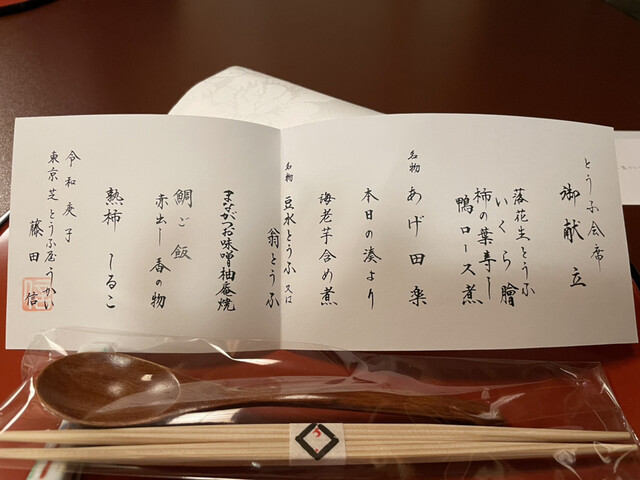 とうふ会席
御献立
落花生とうふ
いくら膾
柿の葉寿し
鴨ロース煮
名物 あげ田楽
本日の湊より
海老芋含め煮
名物 豆水とうふ 又は
翁とうふ
まながつお味噌柚庵焼
鯛ご飯
赤出し 香の物
熟柿 しるこ
令和庚子
東京芝 とうふ屋うかい
藤田 信